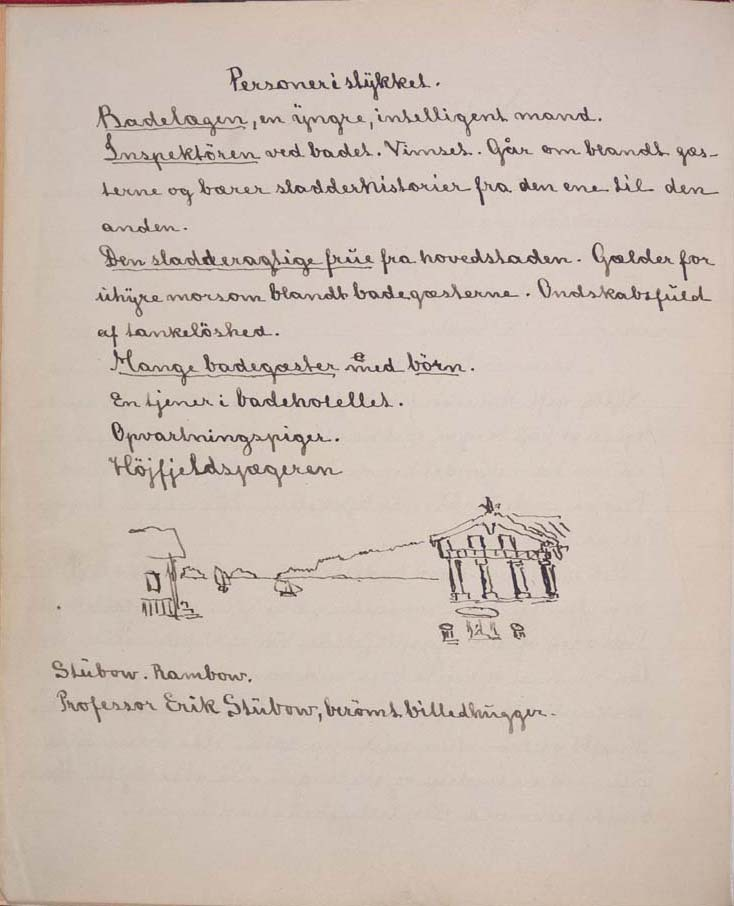 Personer i stykket.
Badelægen, en yngre, intelligent mand.
Inspektören ved badet. Vimset. Går om blandt gæs-
terne og bærer sladderhistorier fra den ene til den
anden.
Den sladderagtige frue fra hovedstaden. Gælder for
uhyre morsom blandt badegæsterne. Ondskabsfuld
af tankelöshed.
Mange badegæster med börn.
En tjener i badehotellet.
Opvartningspiger.
Höjfjeldsjægeren
Stubow. Rambow.
Professor Erik Stubow, berömt billedhugger.